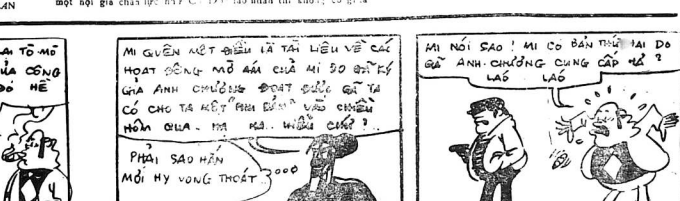 AN
AI TÒ MÒ
ỦA CÔNG
ĐÓ HỀ
MI QUÊN MỘT ĐIỀU LÀ TÀI LIỆU VỀ CÁC
HOẠT ĐỘNG MỜ ÁM CỦA MI DO KÝ
GIẢ ANH CHƯƠNG ĐOẠT ĐƯỢC GÃ TA
CÓ CHO TA MỘT VÀO CHIỀU
HÔM QUA. HA HA.. HIỂU CHỨ ? .
PHẢI SAO HẮN
MỚI HY VỌNG THOÁT
MI NÓI SAO ! MI CÓ BẢN THỨ HAI DO
GÃ ANH-CHƯƠNG CUNG CẤP HẢ ?
LÁO LÁO